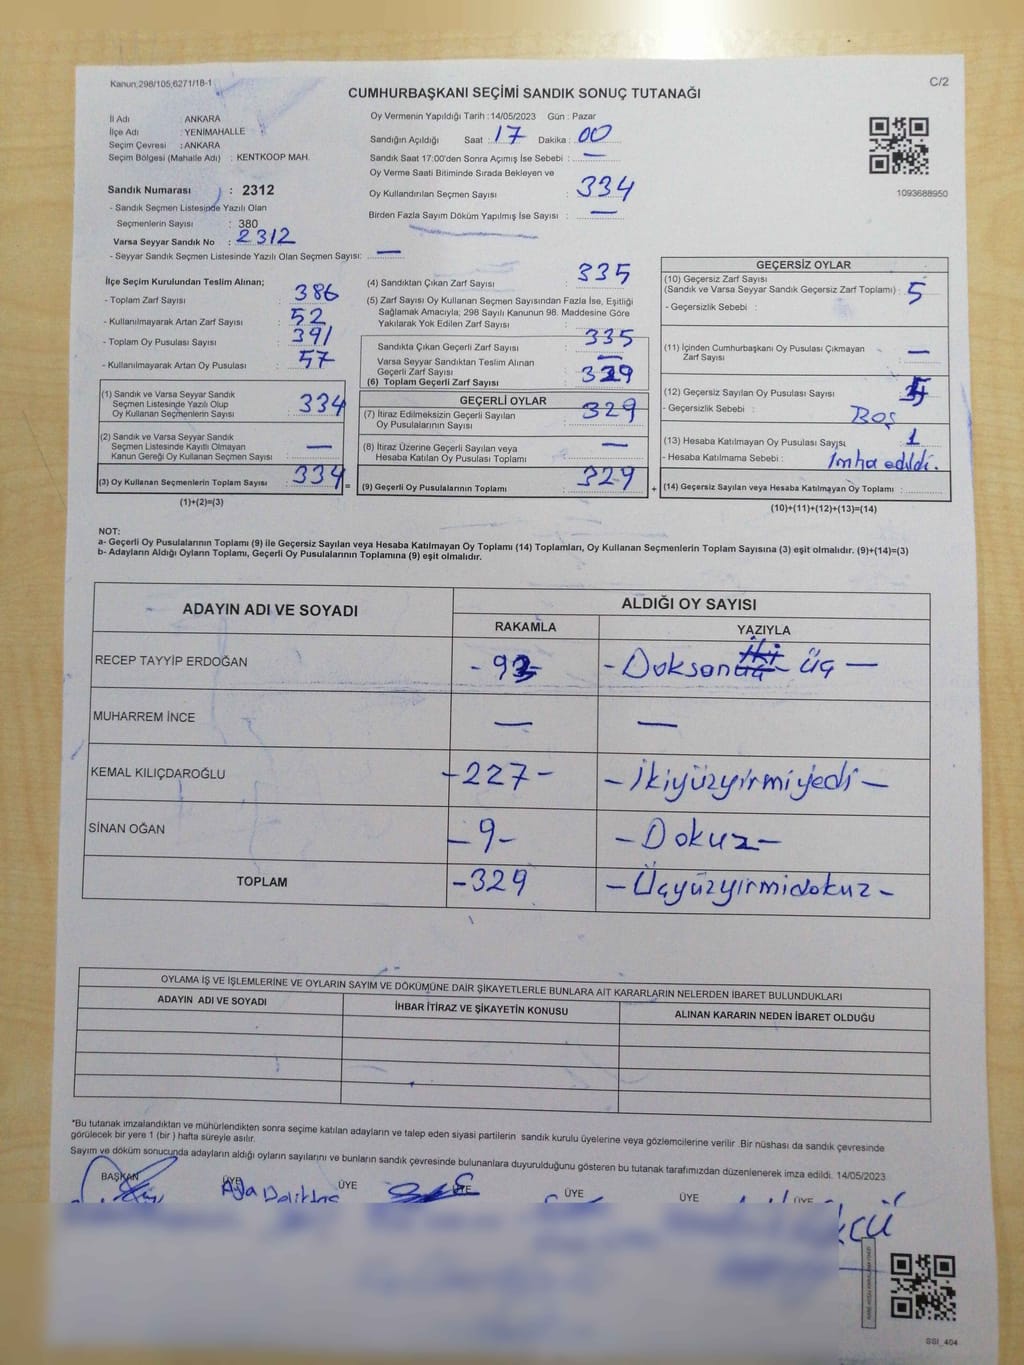 Kanun:298/105,6271/18-1
C/2
CUMHURBAŞKANI SEÇİMİ SANDIK SONUÇ TUTANAĞI
İl Adı ANKARA
İlçe Adı : YENİMAHALLE
Seçim Çevresi : ANKARA
Seçim Bölgesi (Mahalle Adı) : KENTKOOP MAH.
Sandık Numarası : 2312
- Sandık Seçmen Listesinde Yazılı Olan
Seçmenlerin Sayısı : 380
Varsa Seyyar Sandık No : 2312
- Seyyar Sandık Seçmen Listesinde Yazılı Olan Seçmen Sayısı: —
Oy Vermenin Yapıldığı Tarih : 14/05/2023 Gün : Pazar
Sandığın Açıldığı Saat : 17 Dakika : 00
Sandık Saat 17:00'den Sonra Açımış İse Sebebi : —
Oy Verme Saati Bitiminde Sırada Bekleyen ve
Oy Kullandırılan Seçmen Sayısı : 334
Birden Fazla Sayım Döküm Yapılmış İse Sayısı : —
1093688950
İlçe Seçim Kurulundan Teslim Alınan;
- Toplam Zarf Sayısı : 386
- Kullanılmayarak Artan Zarf Sayısı : 52
- Toplam Oy Pusulası Sayısı : 391
- Kullanılmayarak Artan Oy Pusulası : 57
(1) Sandık ve Varsa Seyyar Sandık
Seçmen Listesinde Yazılı Olup
Oy Kullanan Seçmenlerin Sayısı : 334
(2) Sandık ve Varsa Seyyar Sandık
Seçmen Listesinde Kayıtlı Olmayan
Kanun Gereği Oy Kullanan Seçmen Sayısı : —
(3) Oy Kullanan Seçmenlerin Toplam Sayısı : 334 =
(1)+(2)=(3)
(4) Sandıktan Çıkan Zarf Sayısı : 335
(5) Zarf Sayısı Oy Kullanan Seçmen Sayısından Fazla İse, Eşitliği
Sağlamak Amacıyla; 298 Sayılı Kanunun 98. Maddesine Göre
Yakılarak Yok Edilen Zarf Sayısı :
Sandıkta Çıkan Geçerli Zarf Sayısı : 335
Varsa Seyyar Sandıktan Teslim Alınan
Geçerli Zarf Sayısı : —
(6) Toplam Geçerli Zarf Sayısı : 329
GEÇERLİ OYLAR
(7) İtiraz Edilmeksizin Geçerli Sayılan
Oy Pusulalarının Sayısı : 329
(8) İtiraz Üzerine Geçerli Sayılan veya
Hesaba Katılan Oy Pusulası Toplamı : —
(9) Geçerli Oy Pusulalarının Toplamı : 329 +
GEÇERSİZ OYLAR
(10) Geçersiz Zarf Sayısı
(Sandık ve Varsa Seyyar Sandık Geçersiz Zarf Toplamı) : 5
- Geçersizlik Sebebi :
(11) İçinden Cumhurbaşkanı Oy Pusulası Çıkmayan
Zarf Sayısı : —
(12) Geçersiz Sayılan Oy Pusulası Sayısı :
- Geçersizlik Sebebi : Boş
(13) Hesaba Katılmayan Oy Pusulası Sayısı : 1
- Hesaba Katılmama Sebebi : İmha edildi.
(14) Geçersiz Sayılan veya Hesaba Katılmayan Oy Toplamı :
(10)+(11)+(12)+(13)=(14)
NOT:
a- Geçerli Oy Pusulalarının Toplamı (9) ile Geçersiz Sayılan veya Hesaba Katılmayan Oy Toplamı (14) Toplamları, Oy Kullanan Seçmenlerin Toplam Sayısına (3) eşit olmalıdır. (9)+(14)=(3)
b- Adayların Aldığı Oyların Toplamı, Geçerli Oy Pusulalarının Toplamına (9) eşit olmalıdır.
ADAYIN ADI VE SOYADI ALDIĞI OY SAYISI
RAKAMLA YAZIYLA
RECEP TAYYİP ERDOĞAN - 93 - - Doksan üç —
MUHARREM İNCE — —
KEMAL KILIÇDAROĞLU - 227 - - İkiyüzyirmiyedi -
SİNAN OĞAN - 9 - - Dokuz -
TOPLAM - 329 - Üçyüzyirmidokuz -
OYLAMA İŞ VE İŞLEMLERİNE VE OYLARIN SAYIM VE DÖKÜMÜNE DAİR ŞİKAYETLERLE BUNLARA AİT KARARLARIN NELERDEN İBARET BULUNDUKLARI
ADAYIN ADI VE SOYADI İHBAR İTİRAZ VE ŞİKAYETİN KONUSU ALINAN KARARIN NEDEN İBARET OLDUĞU
*Bu tutanak imzalandıktan ve mühürlendikten sonra seçime katılan adayların ve talep eden siyasi partilerin sandık kurulu üyelerine veya gözlemcilerine verilir .Bir nüshası da sandık çevresinde
görülecek bir yere 1 (bir ) hafta süreyle asılır.
Sayım ve döküm sonucunda adayların aldığı oyların sayılarını ve bunların sandık çevresinde bulunanlara duyurulduğunu gösteren bu tutanak tarafımızdan düzenlenerek imza edildi. 14/05/2023
BAŞKAN ÜYE ÜYE ÜYE ÜYE ÜYE ÜYE
SSI_404